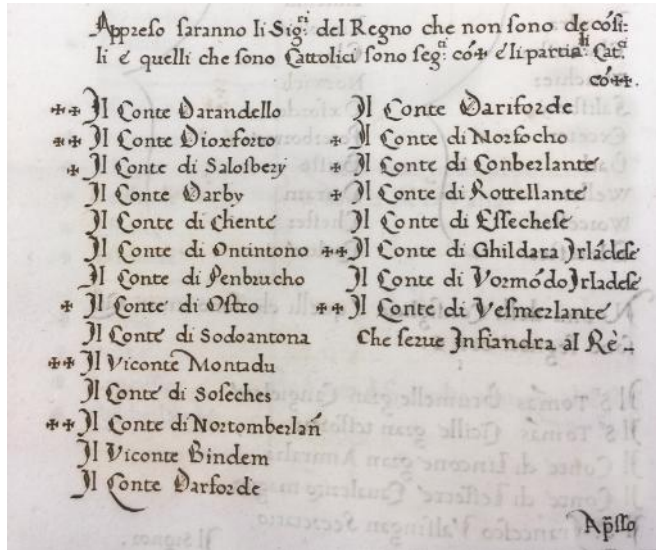 Appreso saranno li Sig:ri del Regno che non sono de cósi:
li é quelli che sono Cattolici sono seg:ti có + é li partia:li Cat:ci
có ++.
++ Il Conte Darandello
++ Il Conte Dioxforto
+ Il Conte di Salosbery
Il Conte Darby
Il Conte di Chente
Il Conte di Ontintono
Il Conte di Penbrucho
+ Il Conte di Ostro
Il Conte di Sodoantona
++ Il Viconte Montadu
Il Conte di Soseches
++ Il Conte di Nortomberlań
Il Viconte Bindem
Il Conte Darforde
Il Conte Dariforde
+ Il Conte di Norfocho
+ Il Conte di Conberlante
+ Il Conte di Rottellante
Il Conte di Essechese
++ Il Conte di Ghildara Irládese
Il Conte di Vormódo Irladese
++ Il Conte di Vesmerlante
Che serue In fiandra al Rè -
Ap̃sso